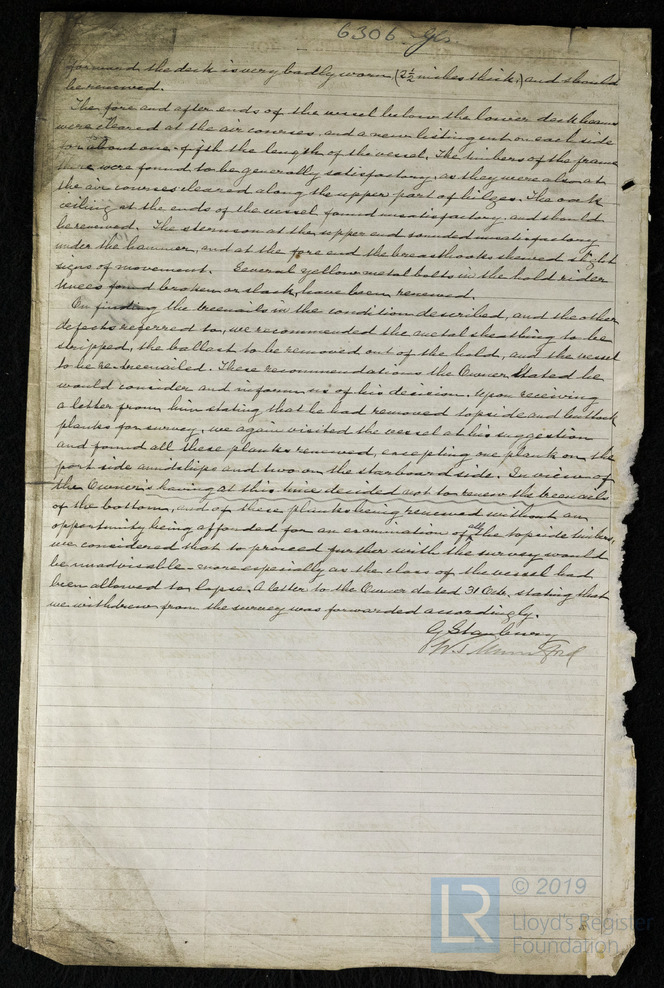 6306 Gls.
forward, the deck is very badly worn (2½ inches thick,) and should
be renewed.
The fore and after ends of the vessel below the lower deck beams
were cleared at the air courses, and a new listing cut on each side
for about one-fifth the length of the vessel. The timbers of the frame
there were found to be generally satisfactory, as they were also at
the air courses cleared along the upper part of bilges. The oak
ceiling at the ends of the vessel found unsatisfactory, and should
be renewed. The sternson at the upper end sounded unsatisfactory
under the hammer, and at the fore end the breasthooks shewed slight
signs of movement. Several yellow metal bolts in the hold rider
knees found broken or slack, have been renewed.
On finding the treenails in the condition described, and the other
defects referred to, we recommended the metal sheathing to be
stripped, the ballast to be removed out of the hold, and the vessel
to be re-treenailed. These recommendations the Owner stated he
would consider and inform us of his decision. Upon receiving
a letter from him stating that he had removed topside and buttock
planks for survey, we again visited the vessel at his suggestion
and found all these planks renewed, excepting one plank on the
port side amidships and two on the starboard side. In view of
the Owner's having at this time decided not to renew the treenails
of the bottom, and of these planks being renewed without an
opportunity being afforded for an examination of all the topside timbers,
we considered that to proceed further with the survey would
be unadvisable - more especially as the class of the vessel had
been allowed to lapse. A letter to the Owner dated 31 Octr. stating that
we withdrew from the survey was forwarded accordingly.
G Stanbury
W. J. Mumford
LR © 2019
Lloyd's Register
Foundation